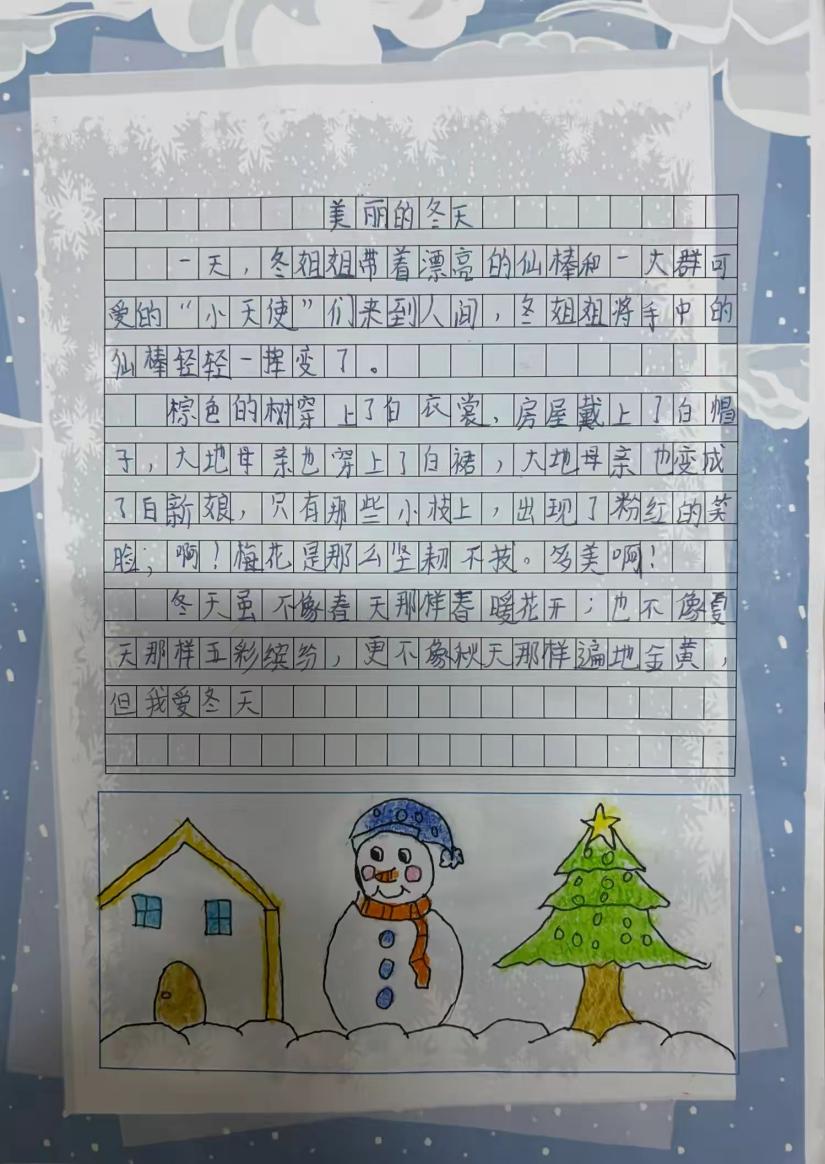 美丽的冬天
一天，冬姐姐带着漂亮的仙棒和一大群可
爱的“小天使”们来到人间，冬姐姐将手中的
仙棒轻轻一挥变了。
棕色的树穿上了白衣裳，房屋戴上了白帽
子，大地母亲也穿上了白裙，大地母亲也变成
了白新娘，只有那些小枝上，出现了粉红的笑
脸；啊！梅花是那么坚韧不拔。多美啊！
冬天虽不像春天那样春暖花开；也不像夏
天那样五彩缤纷，更不像秋天那样遍地金黄，
但我爱冬天